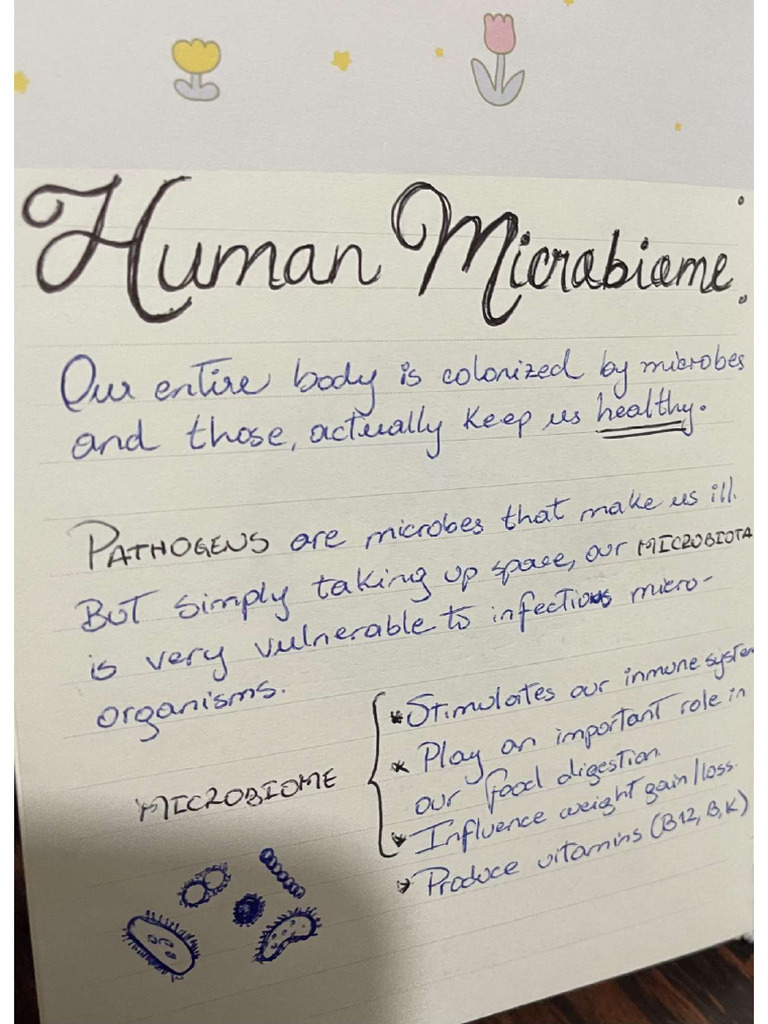 Human Microbiome:
Our entire body is colonized by microbes
and those, actually keep us healthy.
PATHOGENS are microbes that make us ill.
BUT simply taking up space, our MICROBIOTA
is very vulnerable to infectious micro-
organisms.
MICROBIOME
* Stimulates our inmune system
* Play an important role in
our food digestion.
* Influence weight gain/loss.
* Produce vitamins (B12, B, K)